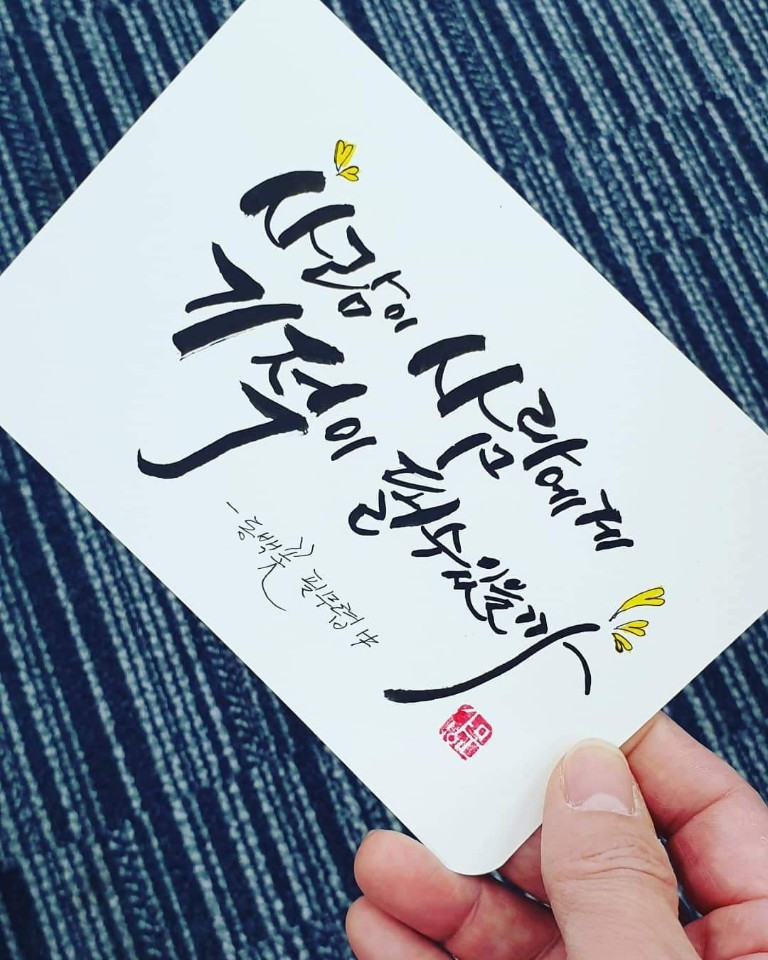 사람이 사람에게
기적이 될 수 있을까
- 동백꽃 필 무렵 中